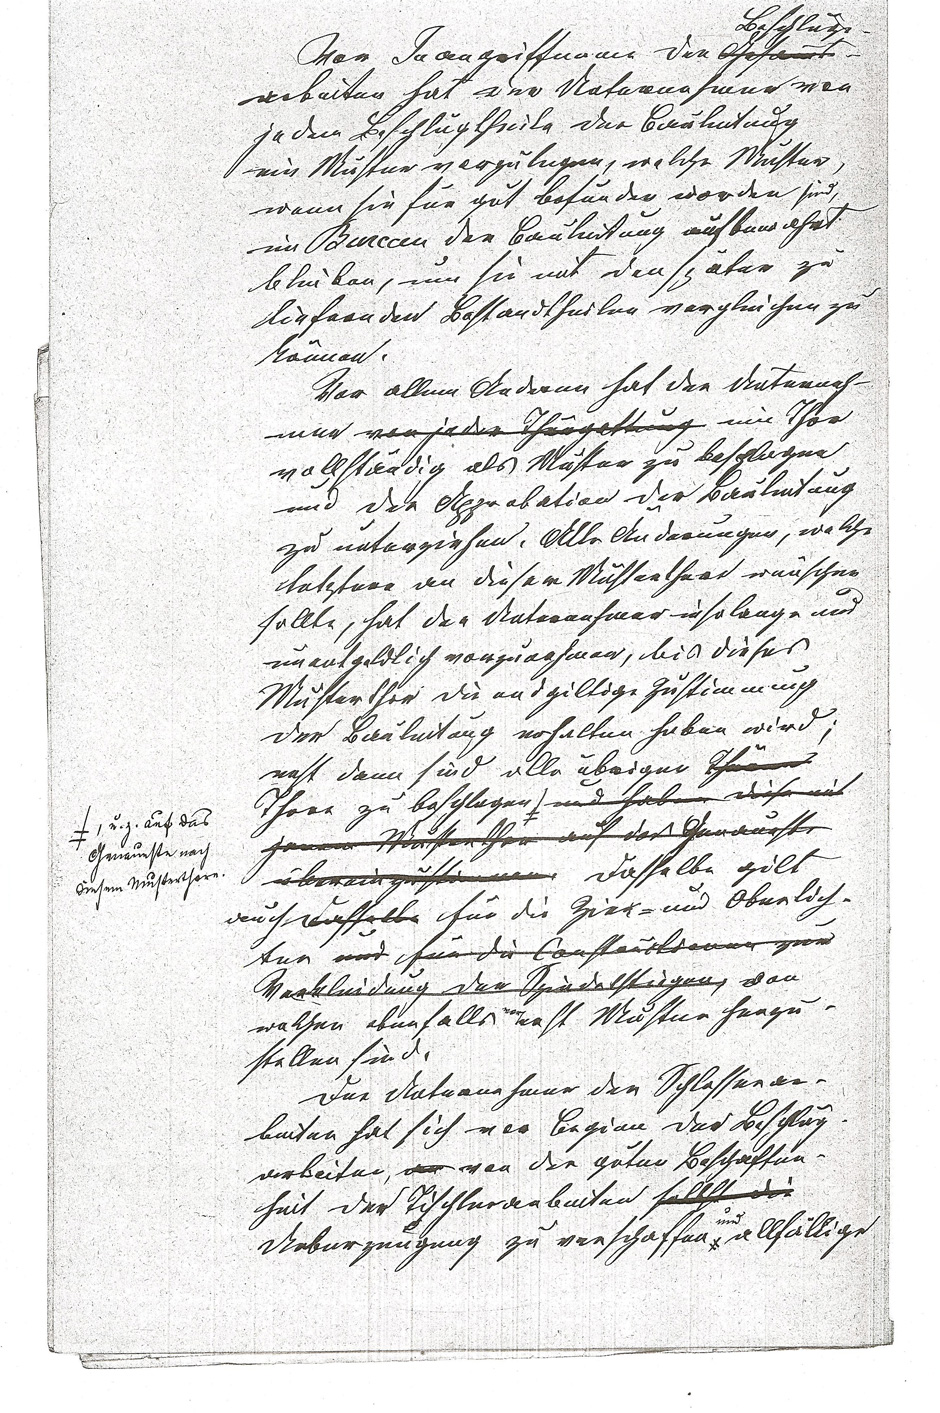 Beschläge-
Vor Inangriffname der Gesamt-
arbeiten hat der Unternehmer von
jedem Beschlagtheile der Bauleitung
ein Muster vorzulegen, welche Muster,
wenn sie für gut befunden worden sind,
im Bureau der Bauleitung aufbewahrt
bleiben, um sie mit den später zu
liefernden Bestandtheilen vergleichen zu
können.
Vor allem Anderen hat der Unterneh-
mer von jeder Thürgattung eine Thür
vollständig als Muster zu beschlagen
und der Approbation der Bauleitung
zu unterziehen. Alle Änderungen, welche
letztere an dieser Musterthüre wünschen
sollte, hat der Unternehmer insolange und
unentgeldlich vorzunehmen, bis dieses
Musterthür die endgiltige Zustimmung
der Bauleitung erhalten haben wird;
erst dann sind alle übrigen Thüren
Thore zu beschlagen und haben diese mit
‡, u. z. auf das
Genaueste nach
diesem Musterthore.
jenem Musterthor auf das Genaueste
übereinzustimmen. Dasselbe gilt
auch dasselbe für die Zier- und Oberlich-
ten und für die Constructionen zur
Verkleidung der Spindelstiegen, von
welchen ebenfalls erst Muster herzu-
stellen sind.
Der Unternehmer der Schlosserar-
beiten hat sich vor Beginn der Beschläg-
arbeiten, von der guten Beschaffen-
heit der Tischlerarbeiten selbst die
Ueberzeugung zu verschaffen und allfällige